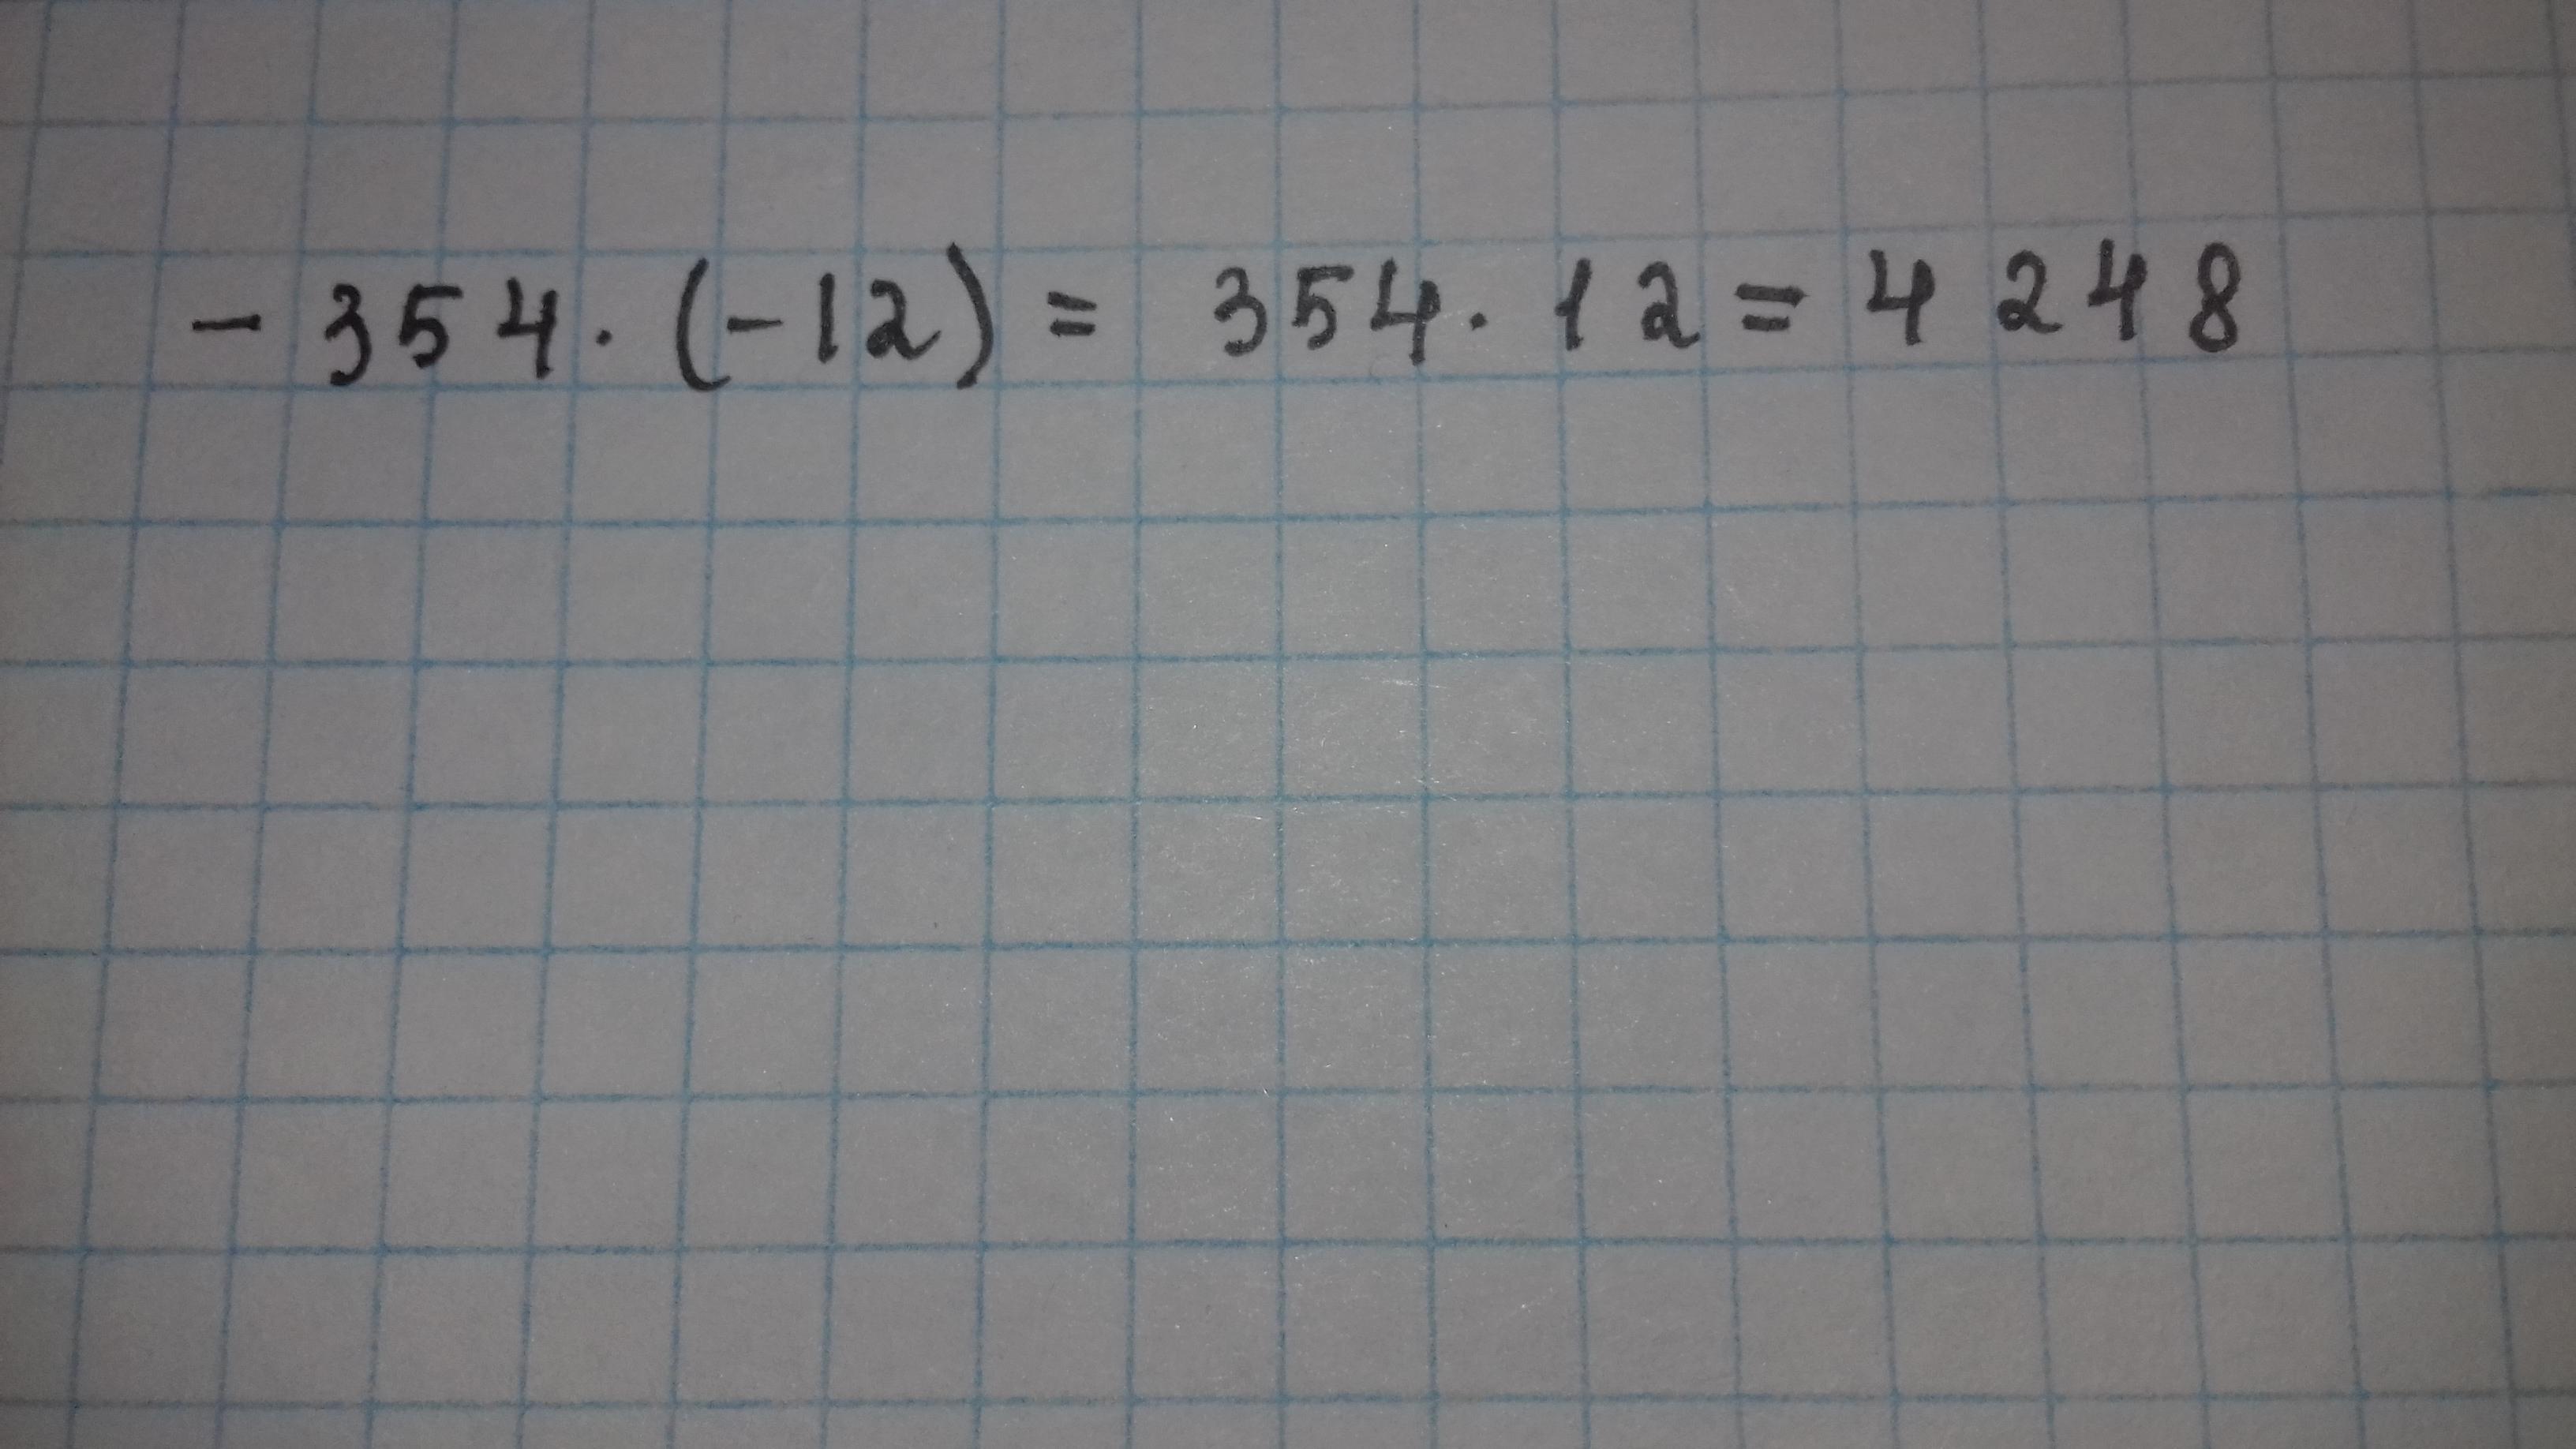 - 354 · (-12) = 354 · 12 = 4248